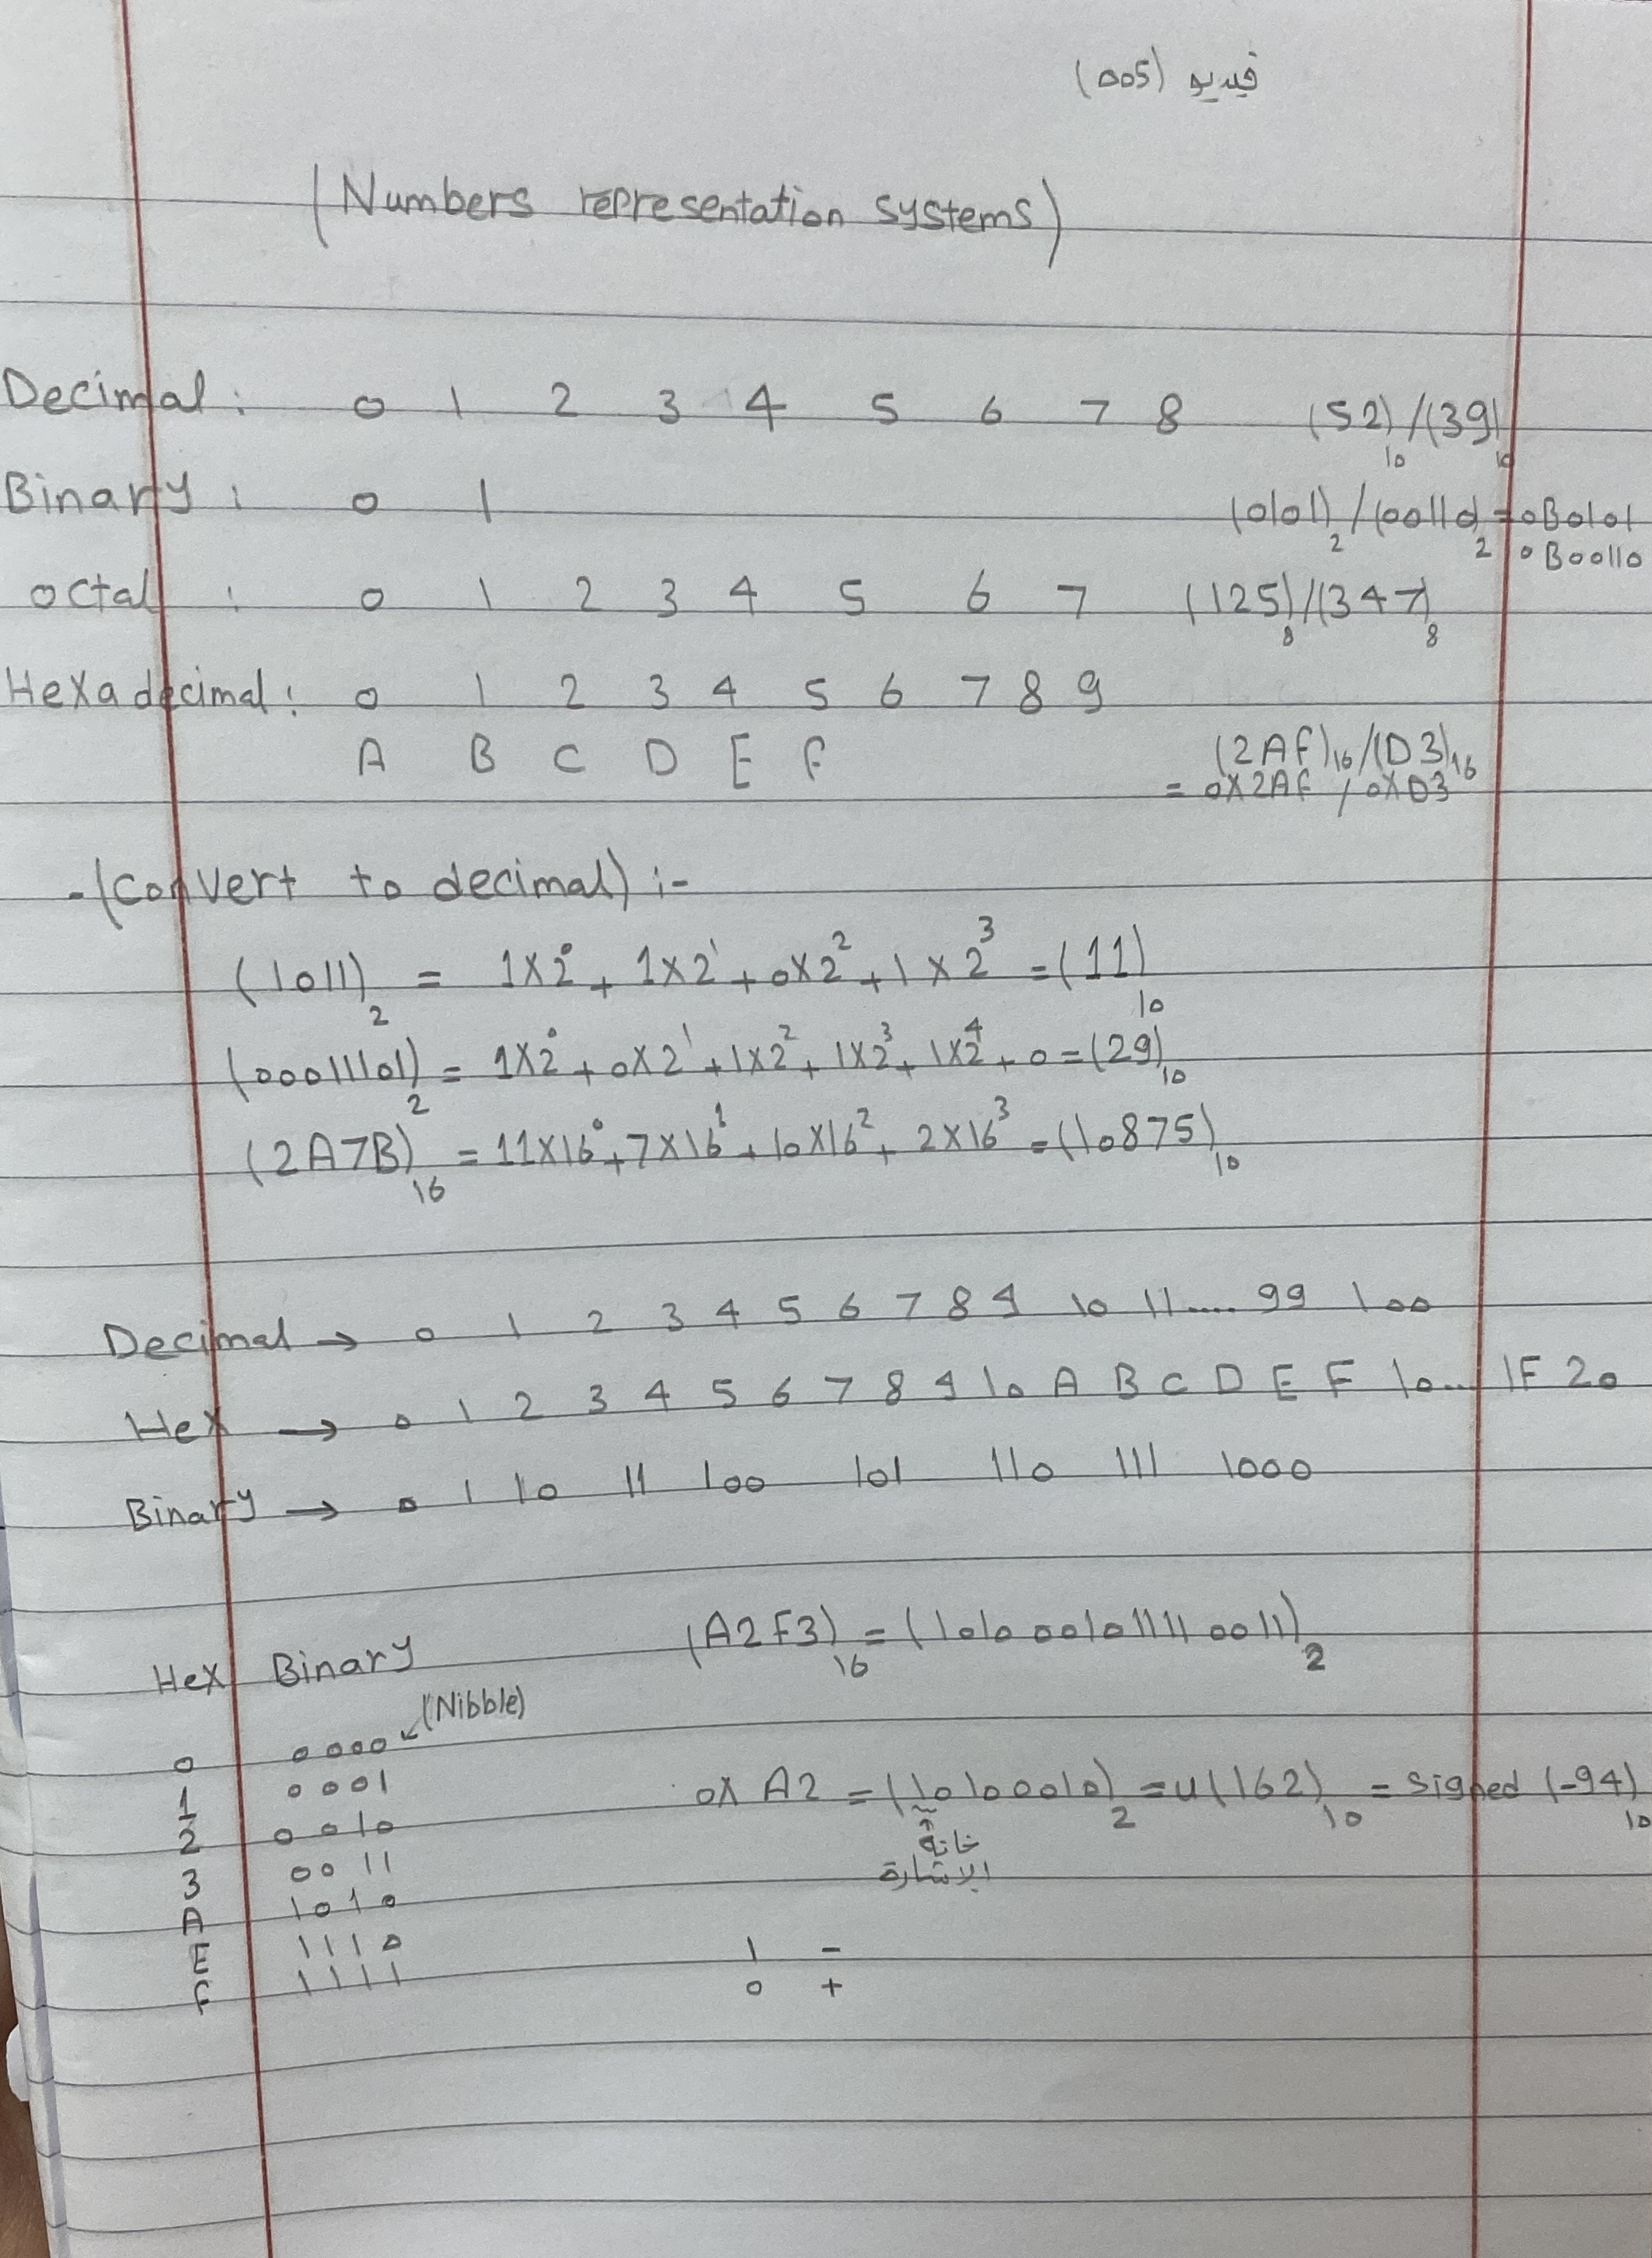 فيديو (005)
(Numbers representation systems)
Decimal: 0 1 2 3 4 5 6 7 8 (52)₁₀/(39)₁₀
Binary: 0 1 (0101)₂/(00110)₂ = 0B0101
0B00110
octal : 0 1 2 3 4 5 6 7 (125)₈/(347)₈
Hexadecimal: 0 1 2 3 4 5 6 7 8 9
A B C D E F (2AF)₁₆/(D3)₁₆
= 0X2AF / 0XD3
-(Convert to decimal) :-
(1011)₂ = 1X2⁰ + 1X2¹ + 0X2² + 1X2³ = (11)₁₀
(00011101)₂ = 1X2⁰ + 0X2¹ + 1X2² + 1X2³ + 1X2⁴ + 0 = (29)₁₀
(2A7B)₁₆ = 11X16⁰ + 7X16¹ + 10X16² + 2X16³ = (10875)₁₀
Decimal → 0 1 2 3 4 5 6 7 8 9 10 11.... 99 100
Hex → 0 1 2 3 4 5 6 7 8 9 10 A B C D E F 10... 1F 20
Binary → 0 1 10 11 100 101 110 111 1000
(A2F3)₁₆ = (1010001011110011)₂
Hex Binary
(Nibble)
0 0000
1 0001
0X A2 = (10100010)₂ = u(162)₁₀ = Signed (-94)₁₀
2 0010
خانة
3 0011
الإشارة
A 1010
E 1110
1 -
F 1111
0 +